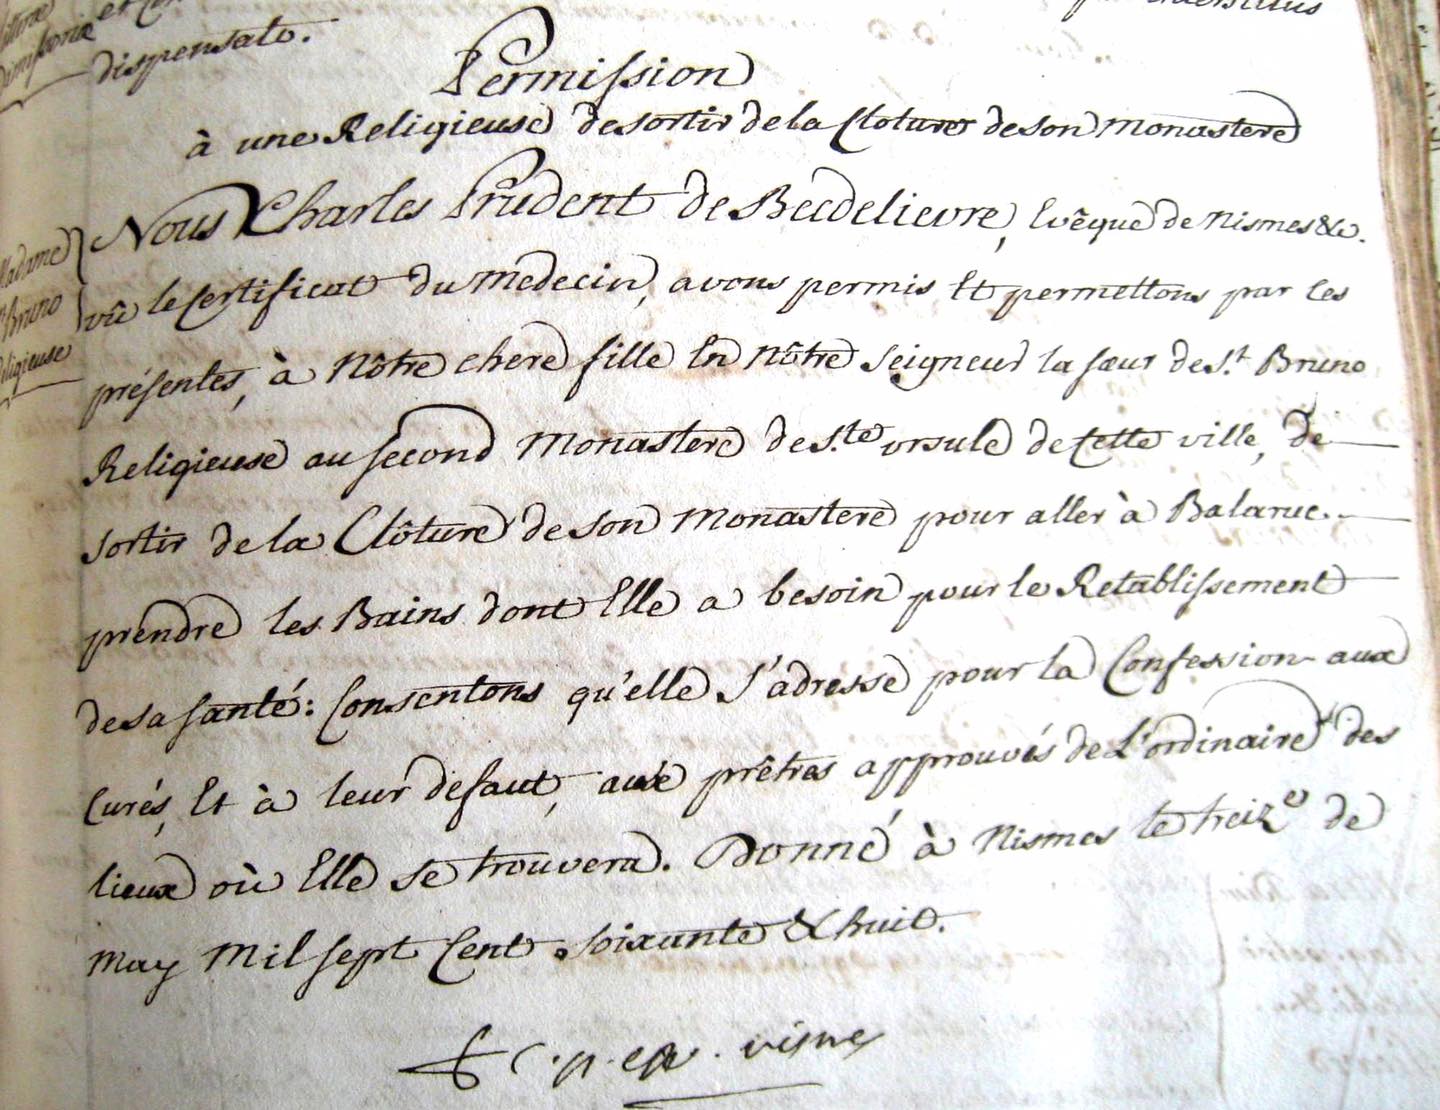 dispensato.
Permission
à une Religieuse de sortir de la Cloture de son Monastere
Nous Charles Prudent de Becdelievre, Evêque de Nismes &c.
vû le Certificat du Medecin, avons permis Et permettons par les
présentes, à Nôtre chere fille En Nôtre Seigneur la sœur de St. Bruno
Religieuse au second Monastere de Ste. ursule de Cette ville, de
sortir de la Clôture de son Monastere pour aller à Balaruc
prendre les Bains dont Elle a besoin pour le Retablissement
de sa santé: Consentons qu'elle s'adresse pour la Confession aux
Curés, Et à leur defaut, aux prêtres approuvés de L'ordinaire des
lieux où Elle se trouvera. Donné à Nismes le treize de
May Mil sept Cent soixante & huit.
Madame
Bruno
Religieuse
C. p. ev. nismes